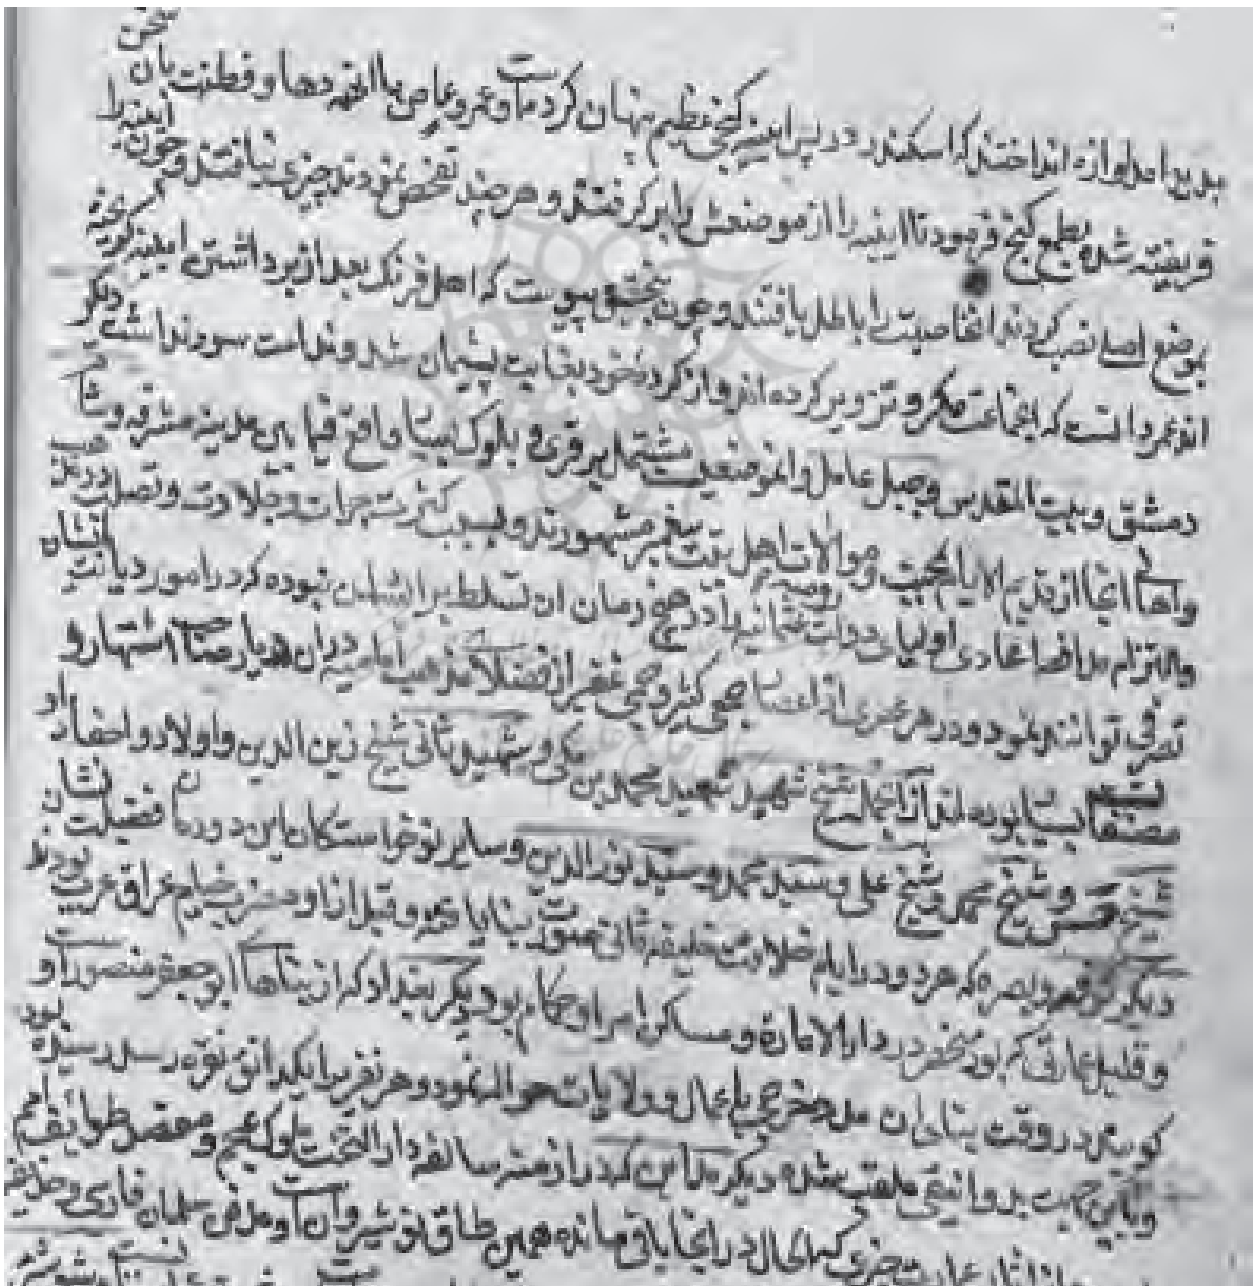 پدید آمد آوازه انداختند که اسکندر در پس آینه کنجی عظیم پنهان کرده است و عمرو عاص با آنهمه دها و فطنت بان سخن
فریفته شده بطمع کنج فرمود تا آینه را از موضعش برکرفتند و هر چند تفحص نمودند چیزی نیافتند و چون آینه را
بموضع اصلی نصب کردند آن خاصیت را باطل یافتند و چون بتحقیق پیوست که اهل فرنک بعد از برداشتن آینه کریخته
اند عمرو دانست که آنجماعت مکر و تزویر کرده اند و از کرده خود بغایت پشیمان شد و ندامت سود نداشت دیکر
دمشق و بیت المقدس و جبل عامل و آن موضعیست مشتمل بر قری و بلوک بسیار واقع فیما بین مدینه مشرفه و شام
و اهالی آنجا از قدیم الایام بمحبت و موالات اهل بیت پیغمبر مشهورند و بسبب کثرت جرات و جلادت و تصلب در مذهب
و التزام مدافعه اعادی اولیای دولت عثمانیه رومیه را در هیچ زمان آن تسلط بر ایشان نبوده که در امور دیانت ایشان
تصرفی توانند نمود و در هر عصری از اعصار جمعی کثیر و جمی غفیر از فضلا مذهب امامیه در آن دیار صاحب اشتهار و
مصنفات بسیار بوده اند از آنجمله شیخ شهید محمد بن مکی و شهید ثانی شیخ زین الدین و اولاد و احفاد او
شیخ حسن و شیخ محمد و شیخ علی و سید محمد و سید نور الدین و سایر نوخواستکان این دودمان فضیلت نشان
دیکر کوفه و بصره که هر دو در ایام خلافت خلیفه ثانی صورت بنا یافته و قبل از او مضرب خیام عراق عرب بودند
و قلیل عمارتی که بود منحصر در دار الاماره و مساکن امرا و حکام بود دیکر بغداد که از بناهای ابو جعفر منصور است و
کویند در وقت بنای آن مدد خرجی باعمال و ولایات حواله نمود و هر نفر را یکدانق نقره رسد رسیده بود
و باین جهت بدوانیقی ملقب شده دیکر مداین که در ازمنه سالفه دار التخت ملوک عجم و مقصد طوایف امم
عمارت چیزی که الحال در آنجا باقی مانده همین طاق نوشیروان است و مدفن سلمان فارسی و حذیفه